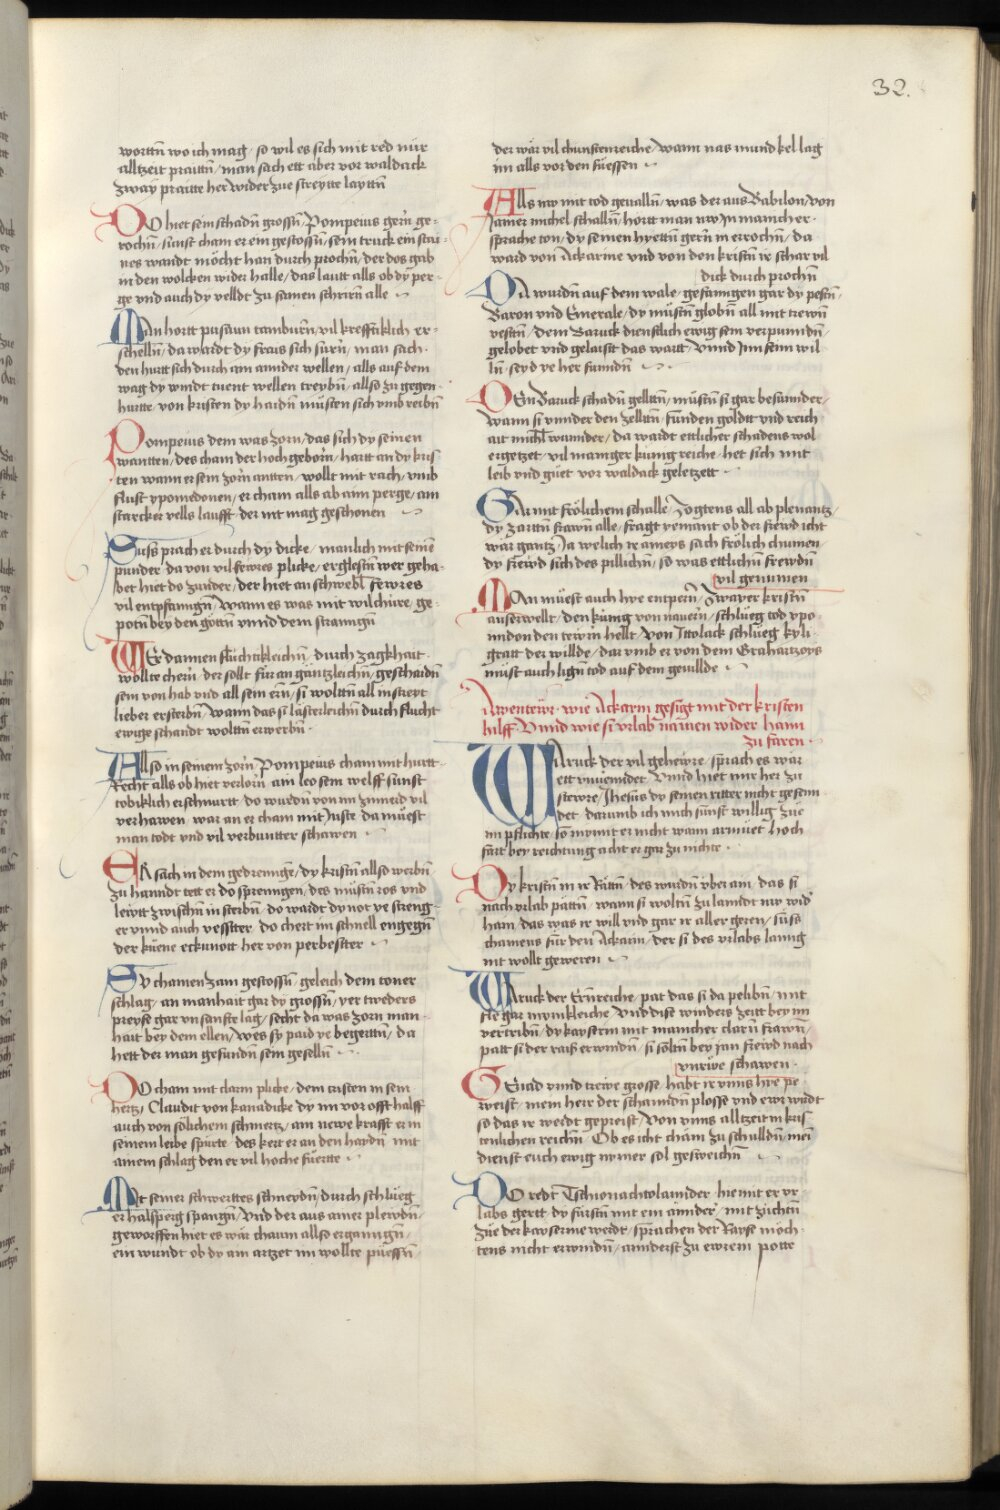 32.
worttn wo ich mag / so wil es sich mit red nür
alltzeit praittn / man sach ett aber vor waldack
zway praitte her wider zue streytte layttn
DO hiet sein schadn grossn / Pompeius gern ge-
rochn / sunst cham er ein gestossn / sein truck ein stai-
nes wandt möcht han durch prochn / der dos gab
in den wolcken wider halle / das lautt alls ob dy per-
ge vnd auch dy velldt zu samen schrirn alle
MAn hortt pusaun tamburn / vil krefftiklich er-
schelln / da wardt dy frais sich sürn / man sach
den hurtt sich durch ain annder wellen / alls auf dem
wag dy windt tuent wellen treybn / allso zu gegen
hurtte / von kristen dy haidn müsten sich vmb reibn
Pompeius dem was zorn / das sich dy seinen
wantten / des cham der hoch geborn / hartt an dy kris-
ten wann er sein zorn antten / wollt mit rach / vmb
flust ypomedonen / er cham alls ab aim perge / ain
starcker vells laufft der nit mag geschonen
Suss prach er durch dy dicke / manlich mit seinē
punder / da von vil fewres plicke / erglestn wer geha-
bet hiet do zunder / der hiet an schwebl fewres
vil entpfanngn / wann es was mit wilchüre / ge-
potn bey den göttn vnnd dem stranngn
WEr dannen fluchtikleichn / durch zagkhait
wollte chern / der sollt für an gäntzleichn / geschaidn
sein von hab vnd all sein ern / si wolttn all in streyt
lieber ersterbn / wann das si lästerleichn durch flucht
ewige schandt wolttn erwerbn
Allso in seinem zorn / Pompeius cham mit hurtt
Recht alls ob hiet verlorn / ain leo sein welff sunst
tobiklich er schnurtt / do wurdn von im zinnerd vil
verhawen / war an er cham mit Juste da müest
man todt vnd vil verbuntter schawen
ER sach in dem gedrennge / dy kristn allso werbn
zu hanndt tett er do sprenngen / des müstn ros vnd
leiwt zwischn in sterbn / do wardt dy not ye streng-
er vnnd auch vesstter / do chert im schnell engegn
der küene eckunott her von perbesster
SY chamen zam gestossn / geleich dem toner
schlag / an manhait gar dy grossn / yet tweders
preyse gar vnsanfte lag / secht da was zorn man-
hait bey dem ellen / wes sy paid ye begerttn / da
hett der man gefundn sein geselln
DO cham mit clarm plicke / dem tristen in sein
hertz / Clauditt von kanadicke / dy im vor offt halff
auch von sölichem schmertz / ain newe krafft er in
seinem leibe spürte / des kert er an den haydn mit
ainem schlag den er vil hoche füertte
MIt seiner schwerttes schneydn / durch schlueg
er halsperg spangn / vnd der aus ainer plewdn /
geworffen hiet es wär chaum allso erganngn /
ein wundt ob dy ain artzet im wollte püessn /
der wär vil chunstenreiche / wann nas mund kel lag
im alls vor den füessen
Alls nw mit tod geualln / was der aus Babilon / von
Jamer michel schalln / hortt man nw Jn manicher
sprache ton / dy seinen hyettn gern in errochn / da
ward von Ackarine vnd von den kristn ir schar vil
dick durch prochn
DA wurdn auf dem wale / gefanngen gar dy pestn /
Baron vnd Emerale / dy müstn globn all mit trewn
vestn / dem Baruck dienstlich ewig sein verpunndn /
gelobet vnd gelaistt das wartt / Vnnd Jnn seim wil
ln / seyd ye her funndn
DEn Baruck schadn gelltn / müstn si gar besunnder /
wann si vnnder den zelltn / funden goldtt vnd reich
ait michl wunnder / da wardt ettlicher schadens wol
ergetzet / vil maniger künig reiche / het sich mit
leib vnd güet vor waldack geletzett
GAr mit frölichem schalle / Zogtens all ab plenantz
dy zarttn frawn alle / fragt yemant ob der frewd icht
war gantz / Ja welich ir ameys sach frölich chumen /
dy frewd sich des pillichn / so was ettlichn frewdn
vil genumen
MAn müest auch hye entpern / Zwayer kristn
ausserwellt / den künig von nauern / schlueg tod ypo
midon den tewrn hellt / von Ittolack schlueg kyli
gratt der willde / dar vmb er von dem Grahartzoys
müst auch lign tod auf dem geuillde
Awentewr wie Ackarin gesigt mit der kristen
hilff Vnnd wie si vrlab namen wider haim
zu faren
WAruck der vil gehewre / sprach es wär
ett vnuenndet / Vnnd hiet mir her zu
stewre / Jhesus dy seinen ritter nicht gesenn
det / darumb ich mich sunst willig zue
im pflichte / so nymmt er nicht wann armüet / hoch
fart bey reichtung acht er gar zu nichte
Dy kristn in ir Rattn / des wurdn vber ain / das si
nach vrlab pattn / wann si woltn zu lanndt nw wid
haim / das was ir will vnd gar ir aller geren / suss
chamens für den Ackarin / der si des vrlabs lanng
nit wollt geweren
WAruck der Ernreiche / pat das si da pelibn / mit
fleˢ gar mynikleiche / Vnd dise winders zeitt bey im
vertribn / dy kayserin mit manicher clarn frawn /
patt si der raiß erwindn / si soltn bey jan frewd nach
vnrwe schawen
GEnad vnnd trewe grosse / habt ir vnns hye pe
weist / mein herr der schanndn plosse / vnd ewr würdt
so das ir weidt gepreist / Von vnns alltzeit in kris
tenlichen reichn / Ob es icht cham zu schulldn / mein
dienst euch ewig nymer sol gesweichn
DO redt Tschionachtolannder / hie mit er vr
labs gertt / dy fürstn mit ein annder / mit züchtn
zue der kayserine werdt / sprachen der Rayse möch
tens nicht erwindn / annderst zu ewrem potte